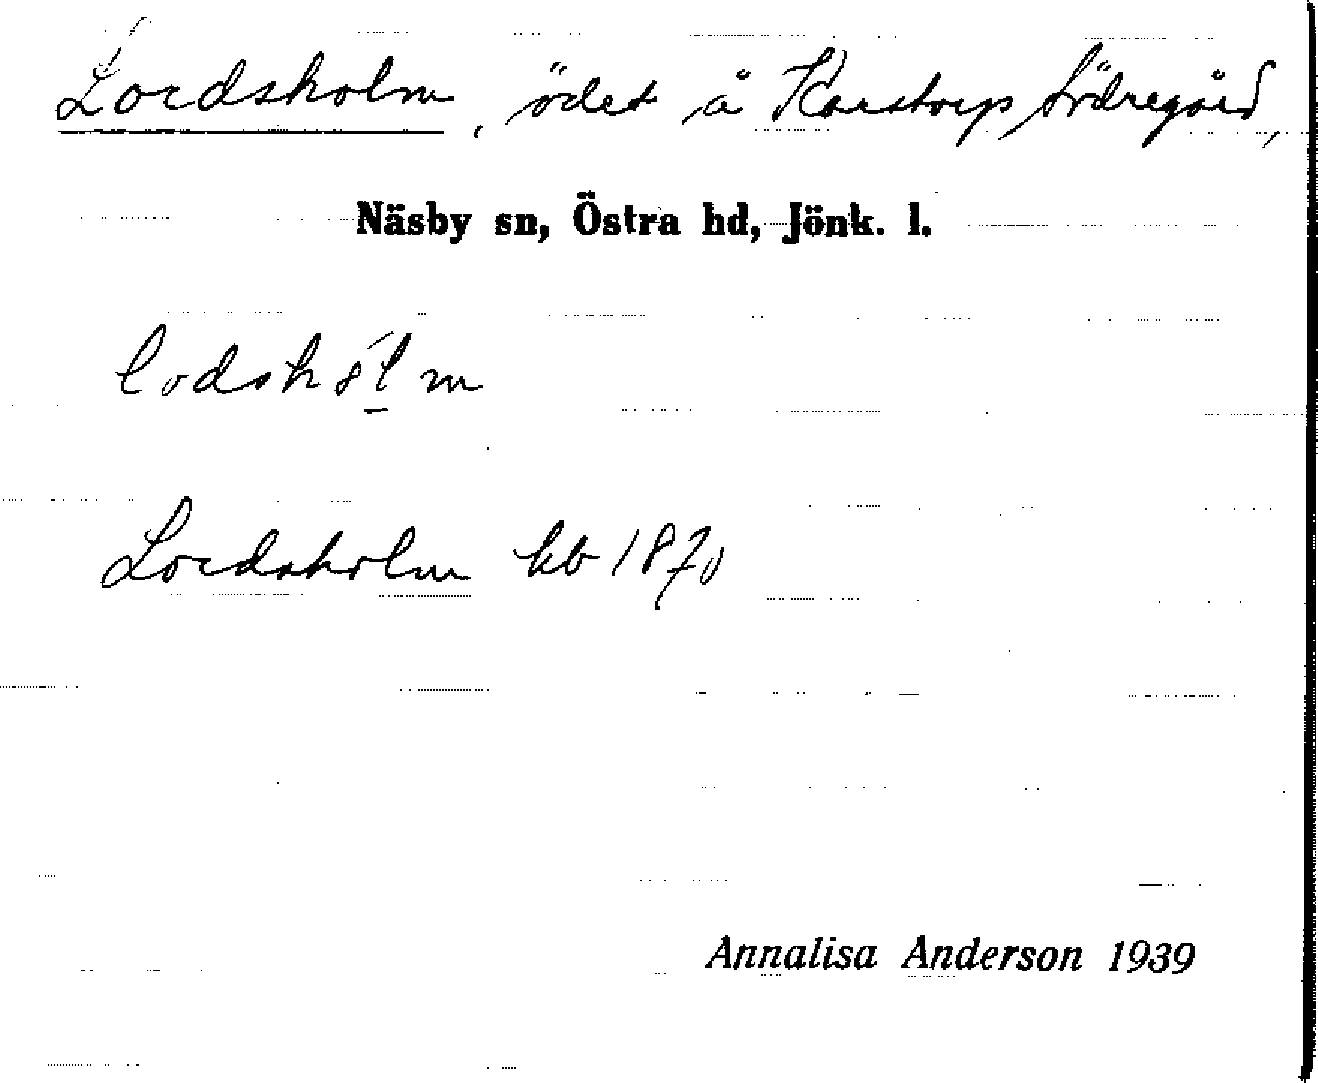 Lordsholm, ödet å Karstorp Södregård,
Näsby sn, Östra hd, Jönk. l.
lodshól̠m
Lordsholm kb 1870
Annalisa Anderson 1939